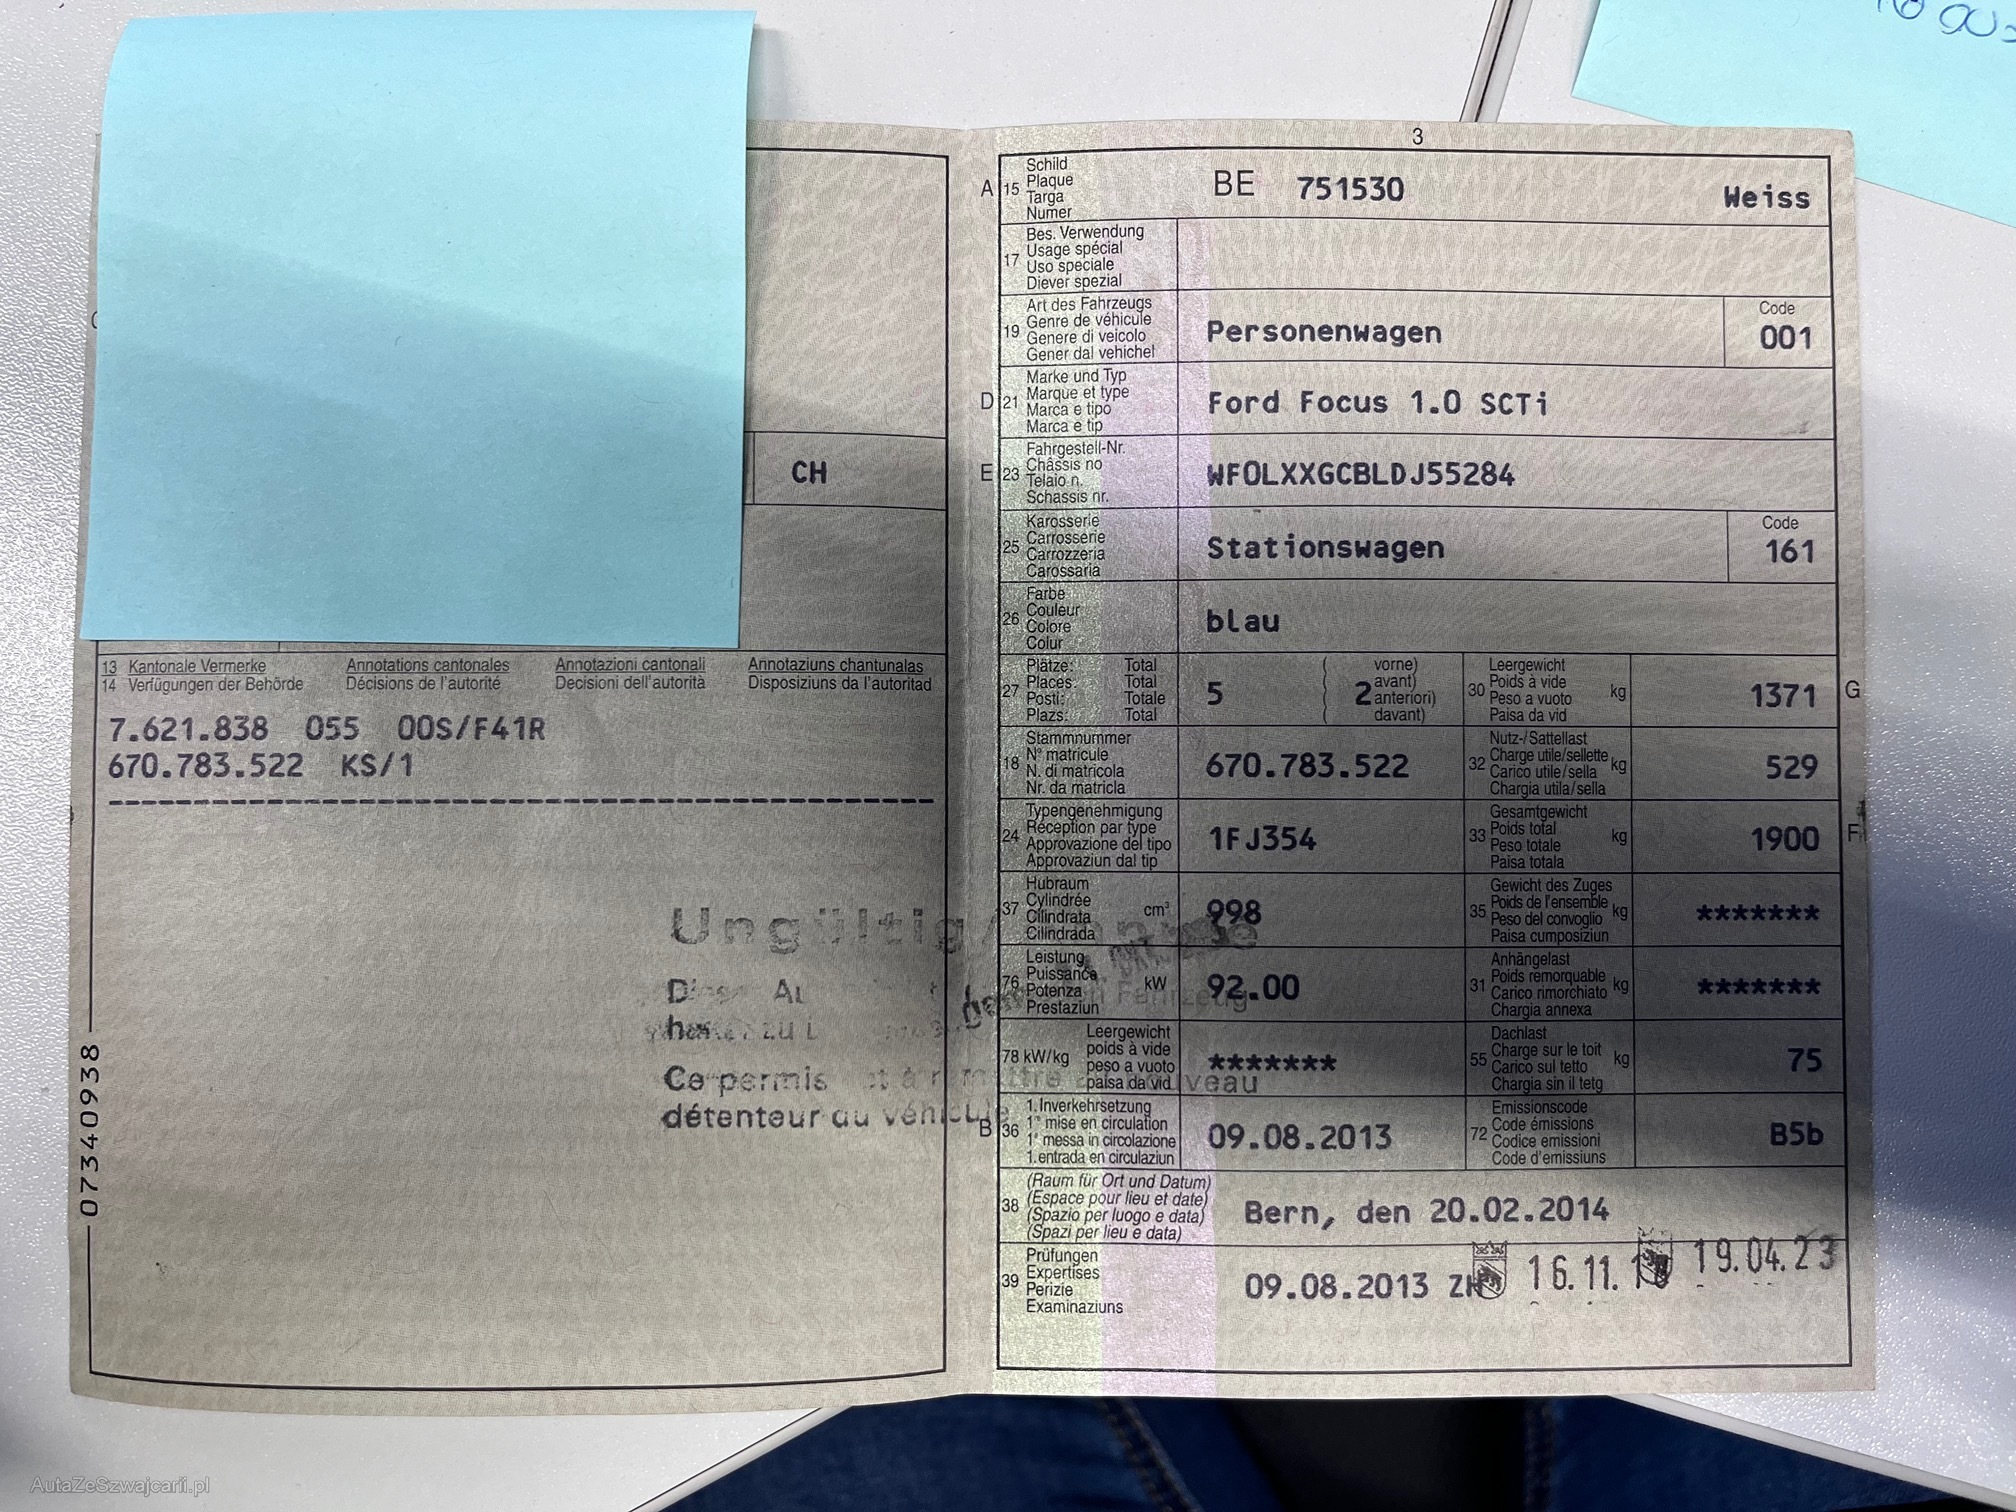 3
A 15 Schild Plaque Targa Numer BE 751530 Weiss
17 Bes. Verwendung Usage spécial Uso speciale Diever spezial
19 Art des Fahrzeugs Genre de véhicule Genere di veicolo Gener dal vehichel Personenwagen Code 001
D 21 Marke und Typ Marque et type Marca e tipo Marca e tip Ford Focus 1.0 SCTi
E 23 Fahrgestell-Nr. Châssis no Telaio n. Schassis nr. WF0LXXGCBLDJ55284
CH
25 Karosserie Carrosserie Carrozzeria Carossaria Stationswagen Code 161
26 Farbe Couleur Colore Colur blau
27 Plätze: Total Places: Total Posti: Totale Plazs: Total 5 ( vorne) avant) 2 anteriori) davant)
30 Leergewicht Poids à vide Peso a vuoto Paisa da vid kg 1371 G
18 Stammnummer N° matricule N. di matricola Nr. da matricla 670.783.522
32 Nutz-/Sattellast Charge utile/sellette Carico utile/sella Chargia utila/sella kg 529
24 Typengenehmigung Réception par type Approvazione del tipo Approvaziun dal tip 1FJ354
33 Gesamtgewicht Poids total Peso totale Paisa totala kg 1900 F
37 Hubraum Cylindrée Cilindrata Cilindrada cm³ 998
35 Gewicht des Zuges Poids de l'ensemble Peso del convoglio Paisa cumposiziun kg *******
76 Leistung Puissance Potenza Prestaziun kW 92.00
31 Anhängelast Poids remorquable Carico rimorchiato Chargia annexa kg *******
78 kW/kg Leergewicht poids à vide peso a vuoto paisa da vid *******
55 Dachlast Charge sur le toit Carico sul tetto Chargia sin il tetg kg 75
B 36 1. Inverkehrsetzung 1re mise en circulation 1a messa in circolazione 1. entrada en circulaziun 09.08.2013
72 Emissionscode Code émissions Codice emissioni Code d'emissiuns B5b
38 (Raum für Ort und Datum) (Espace pour lieu et date) (Spazio per luogo e data) (Spazi per lieu e data) Bern, den 20.02.2014
39 Prüfungen Expertises Perizie Examinaziuns 09.08.2013 ZH 16.11. 19.04.23
13 Kantonale Vermerke Annotations cantonales Annotazioni cantonali Annotaziuns chantunalas
14 Verfügungen der Behörde Décisions de l'autorité Decisioni dell'autorità Disposiziuns da l'autoritad
7.621.838 055 00S/F41R
670.783.522 KS/1
Ungültig/
Fahrzeug
zu
Ce permis est à remettre au nouveau
détenteur du véhicule
0734093 8
AutaZeSzwajcarii.pl